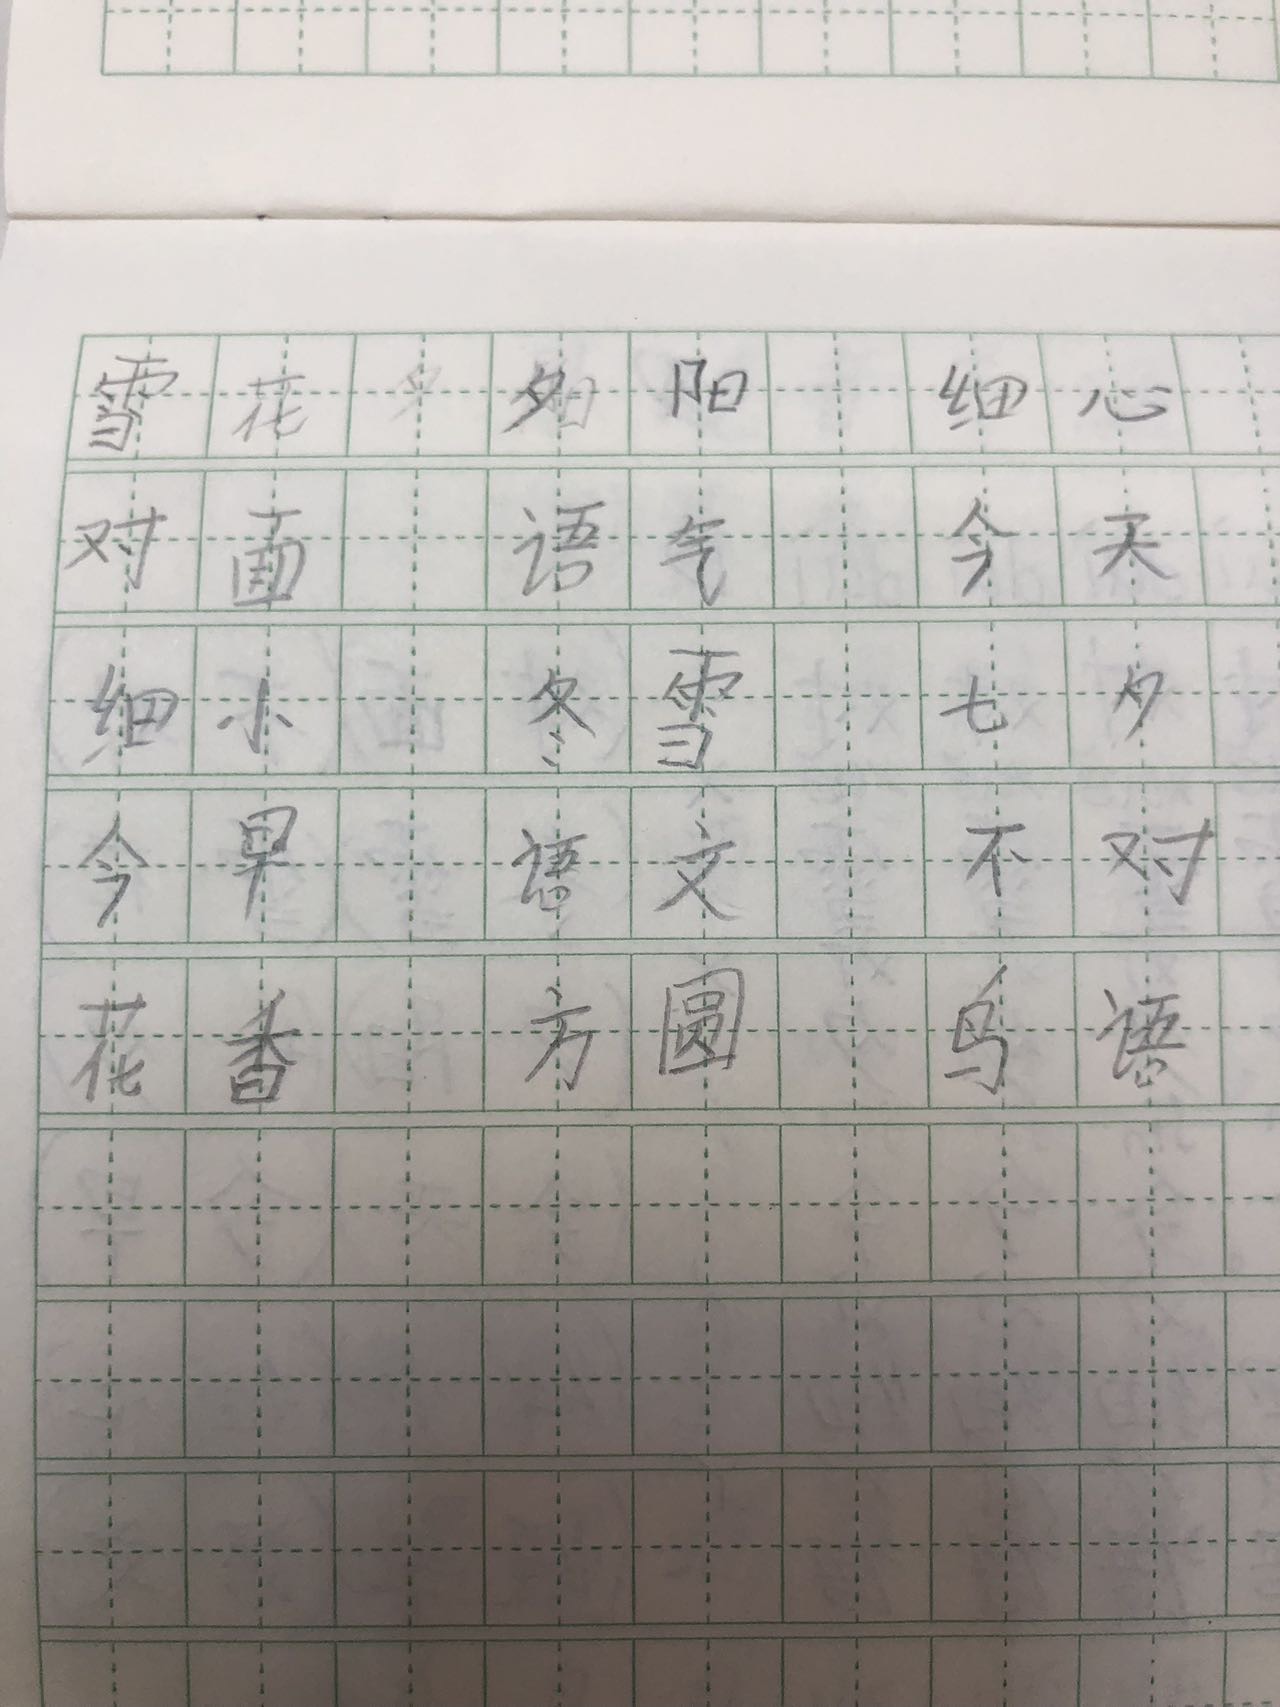 雪花 夕阳 细心
对面 语气 今天
细小 冬雪 七夕
今早 语文 不对
花香 方圆 鸟语